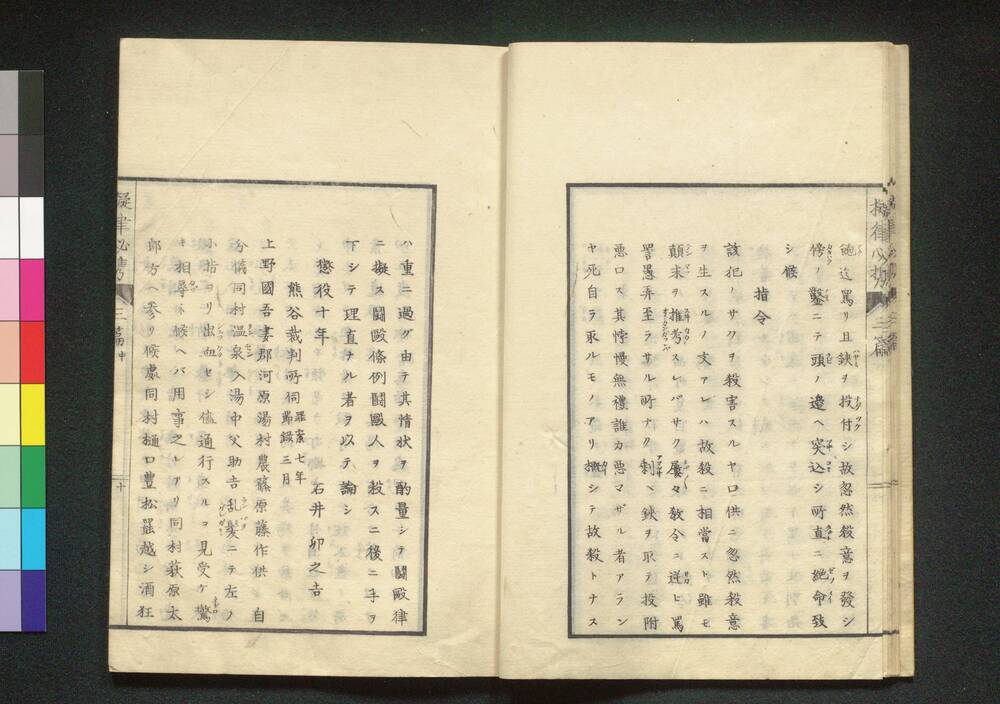 飽迄罵リ且鋏ヲ投付シ故忽然殺意ヲ發シ
傍ノ鑿ニテ頭ノ邉ヘ突込シ所直ニ絶命致
シ候
指令
該犯ノサクヲ殺害スルヤ口供ニ忽然殺意
ヲ生スルノ文アレハ故殺ニ相當スト雖モ
顛末ヲ推考スレバサク屢々教令ニ逆ヒ罵
詈愚弄至ラサル所ナク剰ヘ鋏ヲ取テ投附
悪口ス其悖慢無禮誰カ悪マザル者アラン
ヤ死自ラ取ルモノアリ概シテ故殺トナス
擬律必携 三篇
ハ重ニ過グ由テ其情状ヲ酌量シテ鬪毆律
ニ擬ス鬪毆條例鬪毆人ヲ殺スニ後ニ手ヲ
下シテ理直ナル者ヲ以テ論シ
懲役十年
熊谷裁判所伺 罪案七年 節録三月 石井卯之吉
上野國吾妻郡河原湯村農篠原藤作供ニ自
分儀同村温泉入湯中父助吉乱髪ニテ左ノ
小指ヨリ出血セシ儘通行スルヲ見受ケ驚
キ相尋ネ候ヘバ用事之レアリ同村萩原太
郎方ヘ参リ候處同村樋口豊松罷越シ酒狂
擬律必携 三篇 中 十